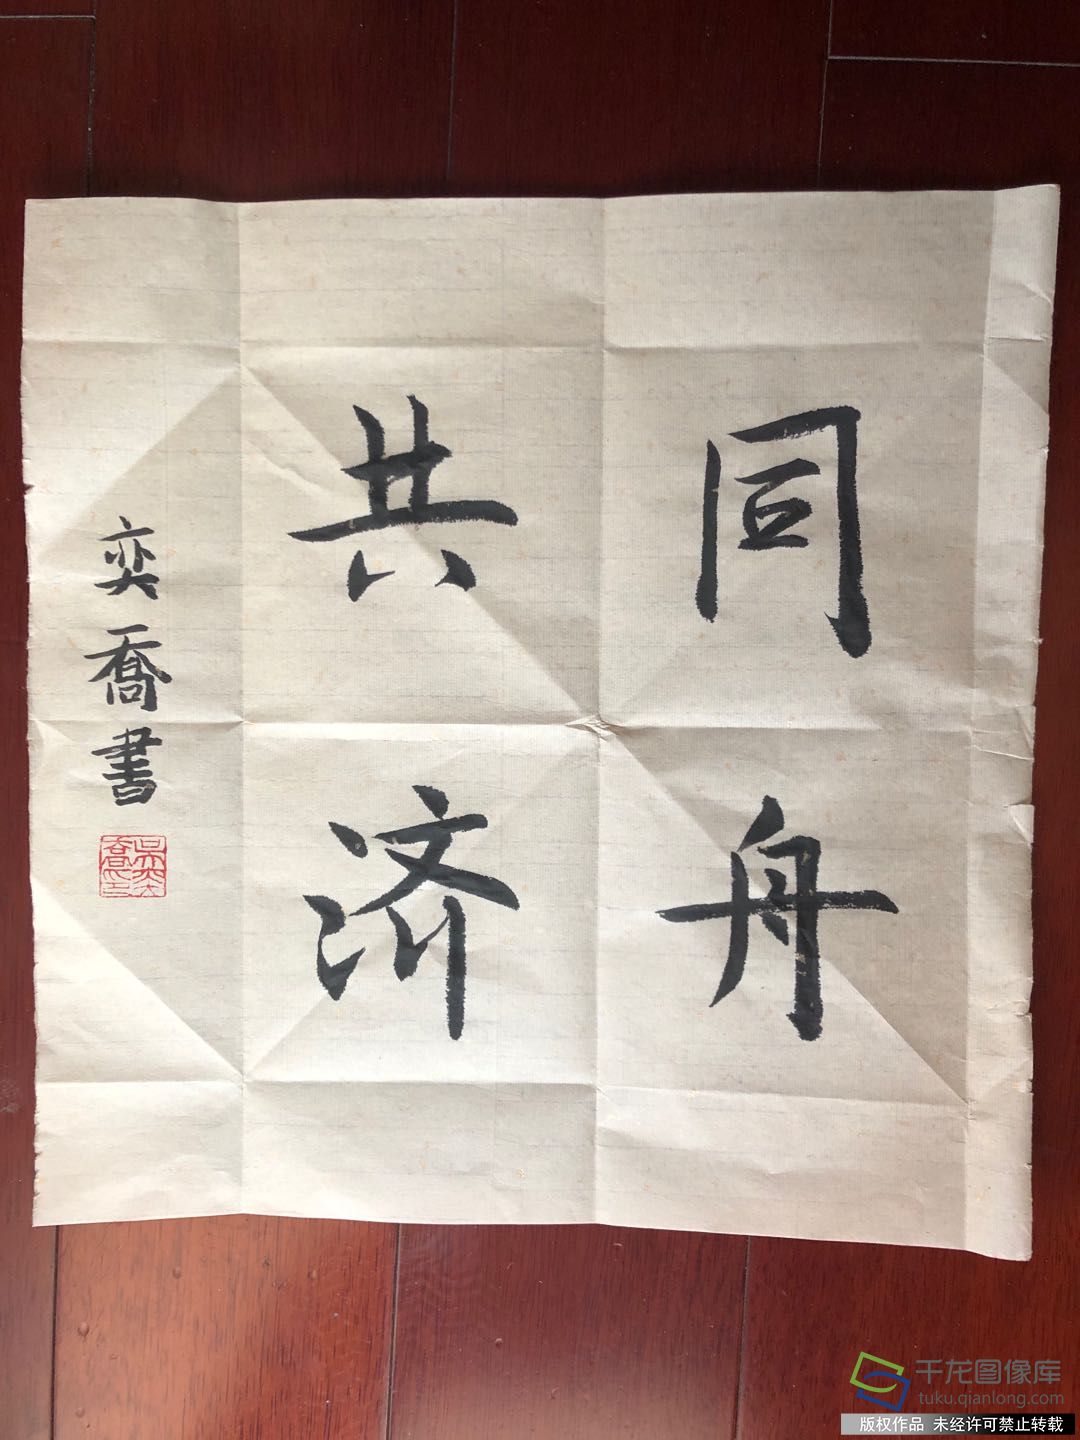 同舟
共济
奕喬書
吴奕喬印
千龙图像库
tuku.qianlong.com
版权作品 未经许可禁止转载